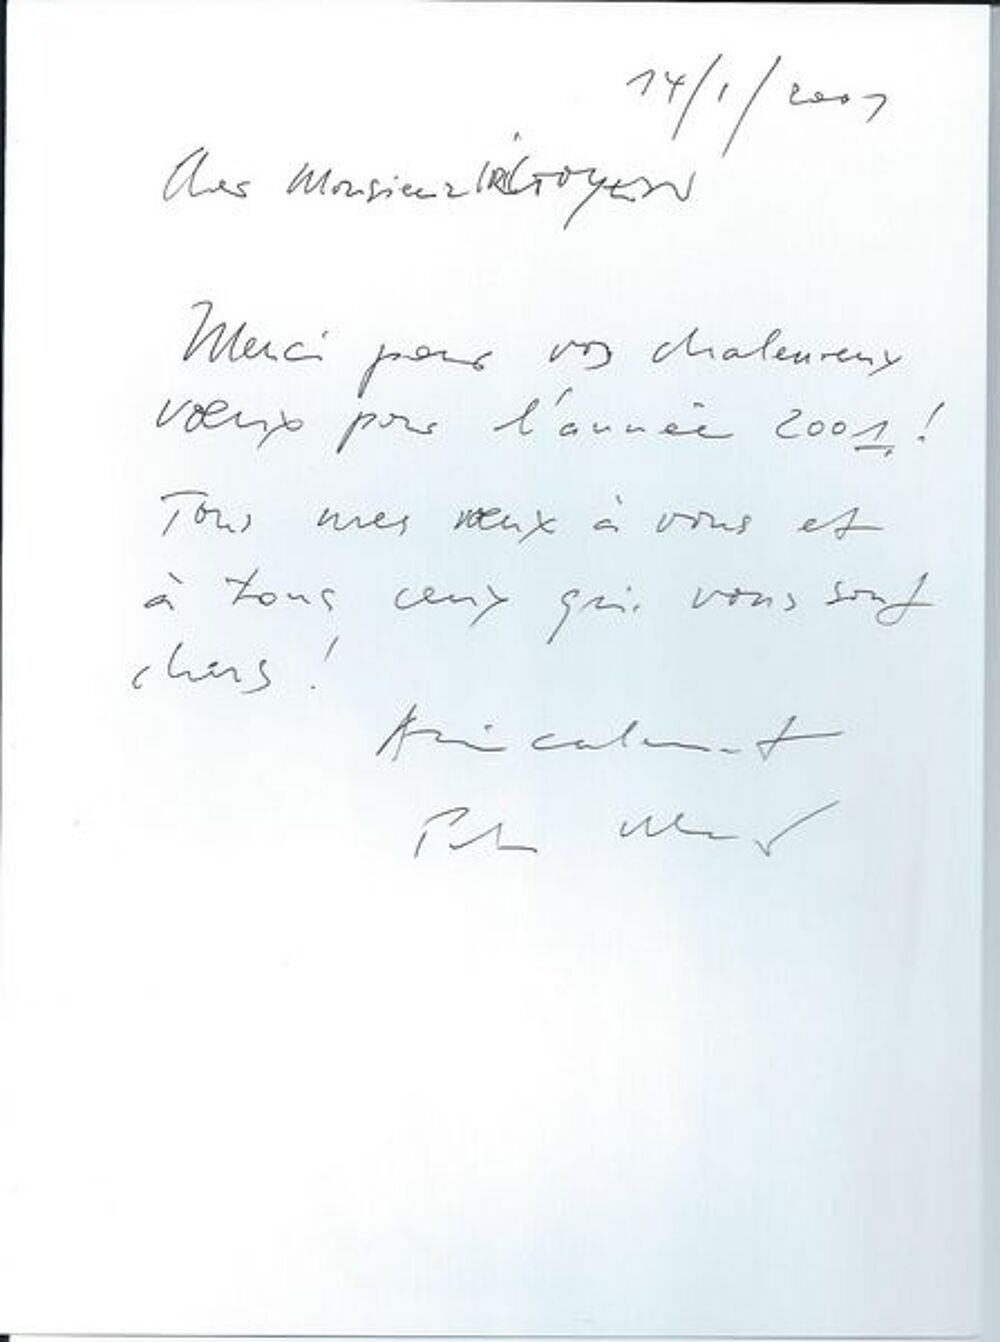 14/1/2001
Cher Monsieur
Merci pour vos chaleureux
vœux pour l'année 2001 !
Tous mes vœux à vous et
à tous ceux qui vous sont
chers !
Amicalement